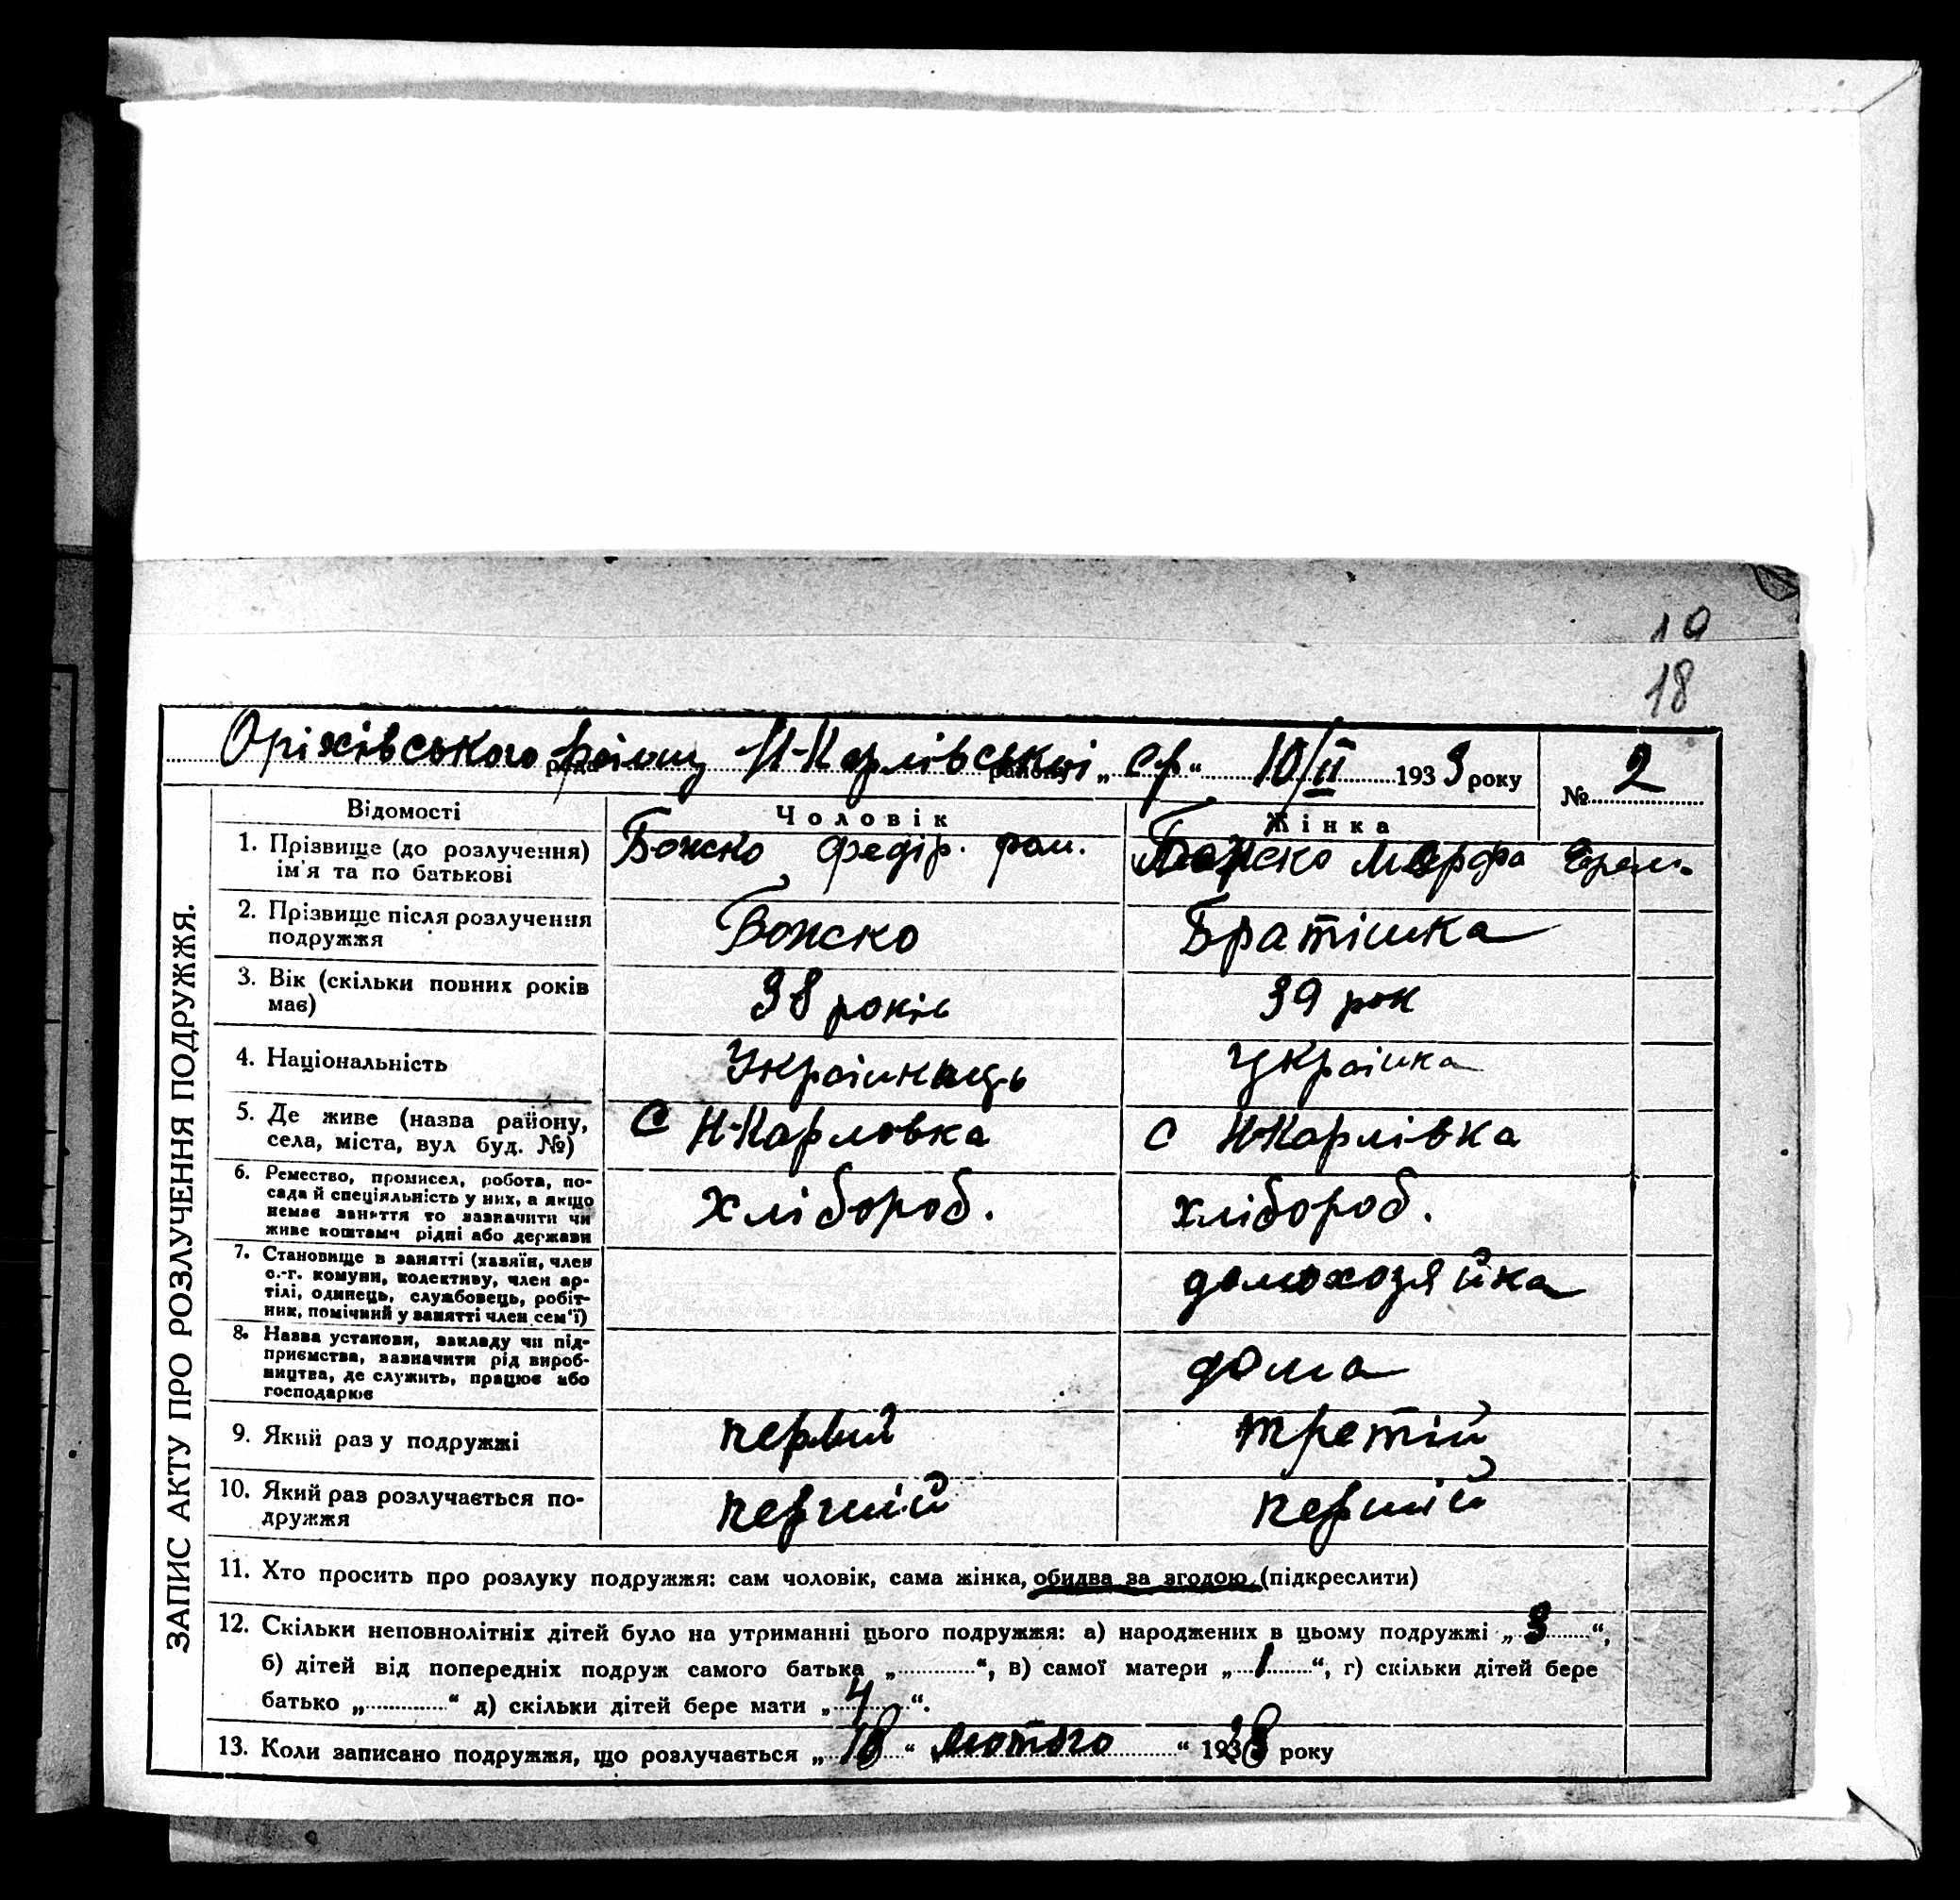 19
18
Оріхівського району Н-Карлівської с/р 10/II 1933 року № 2
ЗАПИС АКТУ ПРО РОЗЛУЧЕННЯ ПОДРУЖЖЯ.
Відомості Чоловік Жінка
1. Прізвище (до розлучення) Божко Федір. Ром. Божко Марфа Ерем.
ім'я та по батькові
2. Прізвище після розлучення Божко Братішка
подружжя
3. Вік (скільки повних років 38 років 39 рок
має)
4. Національність Українець Українка
5. Де живе (назва району, С Н-Карловка С Н-Карлівка
села, міста, вул буд. №)
6. Ремество, промисел, робота, по- хлібороб. хлібороб.
сада й спеціяльність у них, а якщо
немає заняття то зазначити чи
живе коштами рідні або держави
7. Становище в занятті (хазяїн, член домохозяйка
с.-г. комуни, колективу, член ар-
тілі, одинець, службовець, робіт-
ник, помічний у занятті член сем'ї)
8. Назва установи, закладу чи під- дома
приємства, зазначити рід вироб-
ництва, де служить, працює або
господарює
9. Який раз у подружжі первий третій
10. Який раз розлучається по- перший перший
дружжя
11. Хто просить про розлуку подружжя: сам чоловік, сама жінка, обидва за згодою (підкреслити)
12. Скільки неповнолітніх дітей було на утриманні цього подружжя: а) народжених в цьому подружжі „3“,
б) дітей від попередніх подруж самого батька „............“, в) самої матери „1“, г) скільки дітей бере
батько „............“ д) скільки дітей бере мати „4“.
13. Коли записано подружжя, що розлучається „18“ „лютого“ 193 року